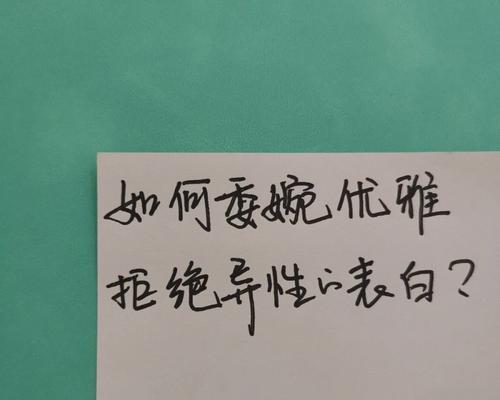 如何委婉优雅
拒绝异性的表白?